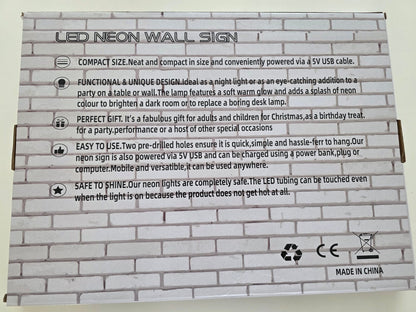 LED NEON WALL SIGN
COMPACT SIZE.Neat and compact in size and conveniently powered via a 5V USB cable.
FUNCTIONAL & UNIQUE DESIGN.Ideal as a night light or as an eye-catching addition to a
party on a table or wall.The lamp features a soft warm glow and adds a splash of neon
colour to brighten a dark room or to replace a boring desk lamp.
PERFECT GIFT. It's a fabulous gift for adults and children for Christmas,as a birthday treat.
for a party.performance or a host of other special occasions
EASY TO USE.Two pre-drilled holes ensure it is quick,simple and hassle-ferr to hang.Our
neon sign is also powered via 5V USB and can be charged using a power bank,plug or
computer.Mobile and versatile,it can be used anywhere.
SAFE TO SHINE.Our neon lights are completely safe.The LED tubing can be touched even
when the light is on because the product does not get hot at all.
CE
MADE IN CHINA